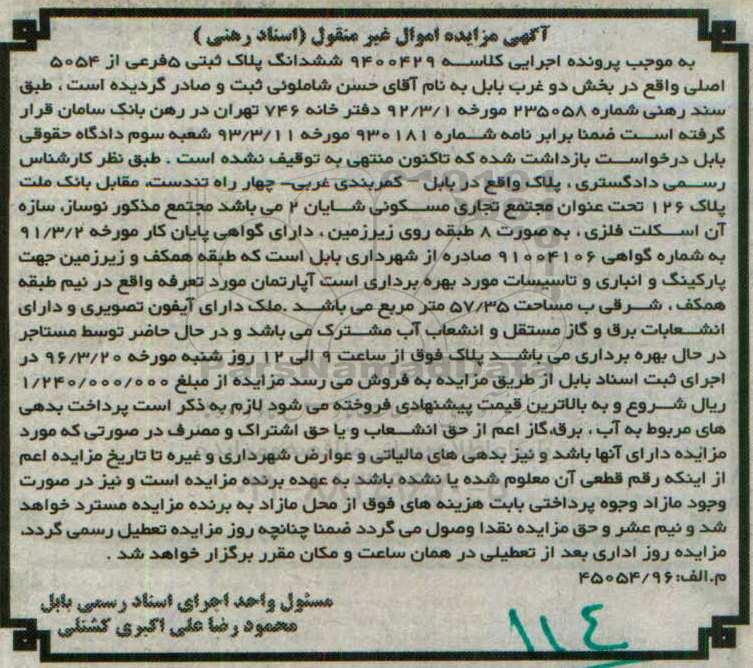 آگهی مزایده اموال غیر منقول (اسناد رهنی)
به موجب پرونده اجرایی کلاسه ۹۴۰۰۴۲۹ ششدانگ پلاک ثبتی ۵فرعی از ۵۰۵۴
اصلی واقع در بخش دو غرب بابل به نام آقای حسن شاملوئی ثبت و صادر گردیده است ، طبق
سند رهنی شماره ۲۳۵۰۵۸ مورخه ۹۲/۳/۱ دفتر خانه ۷۴۶ تهران در رهن بانک سامان قرار
گرفته است ضمنا برابر نامه شماره ۹۳۰۱۸۱ مورخه ۹۳/۳/۱۱ شعبه سوم دادگاه حقوقی
بابل درخواست بازداشت شده که تاکنون منتهی به توقیف نشده است . طبق نظر کارشناس
رسمی دادگستری ، پلاک واقع در بابل – کمربندی غربی– چهار راه تندست، مقابل بانک ملت
پلاک ۱۲۶ تحت عنوان مجتمع تجاری مسکونی شایان ۲ می باشد مجتمع مذکور نوساز، سازه
آن اسکلت فلزی ، به صورت ۸ طبقه روی زیرزمین ، دارای گواهی پایان کار مورخه ۹۱/۳/۲
به شماره گواهی ۹۱۰۰۴۱۰۶ صادره از شهرداری بابل است که طبقه همکف و زیرزمین جهت
پارکینگ و انباری و تاسیسات مورد بهره برداری است آپارتمان مورد تعرفه واقع در نیم طبقه
همکف ، شرقی ب مساحت ۵۷/۳۵ متر مربع می باشد .ملک دارای آیفون تصویری و دارای
انشعابات برق و گاز مستقل و انشعاب آب مشترک می باشد و در حال حاضر توسط مستاجر
در حال بهره برداری می باشد پلاک فوق از ساعت ۹ الی ۱۲ روز شنبه مورخه ۹۶/۳/۲۰ در
اجرای ثبت اسناد بابل از طریق مزایده به فروش می رسد مزایده از مبلغ ۱/۲۴۰/۰۰۰/۰۰۰
ریال شروع و به بالاترین قیمت پیشنهادی فروخته می شود لازم به ذکر است پرداخت بدهی
های مربوط به آب ، برق،گاز اعم از حق انشعاب و یا حق اشتراک و مصرف در صورتی که مورد
مزایده دارای آنها باشد و نیز بدهی های مالیاتی و عوارض شهرداری و غیره تا تاریخ مزایده اعم
از اینکه رقم قطعی آن معلوم شده یا نشده باشد به عهده برنده مزایده است و نیز در صورت
وجود مازاد وجوه پرداختی بابت هزینه های فوق از محل مازاد به برنده مزایده مسترد خواهد
شد و نیم عشر و حق مزایده نقدا وصول می گردد ضمنا چنانچه روز مزایده تعطیل رسمی گردد،
مزایده روز اداری بعد از تعطیلی در همان ساعت و مکان مقرر برگزار خواهد شد .
م.الف:۴۵۰۵۴/۹۶
مسئول واحد اجرای اسناد رسمی بابل
محمود رضا علی اکبری کشتلی
۱۱٤
ParsNamadData